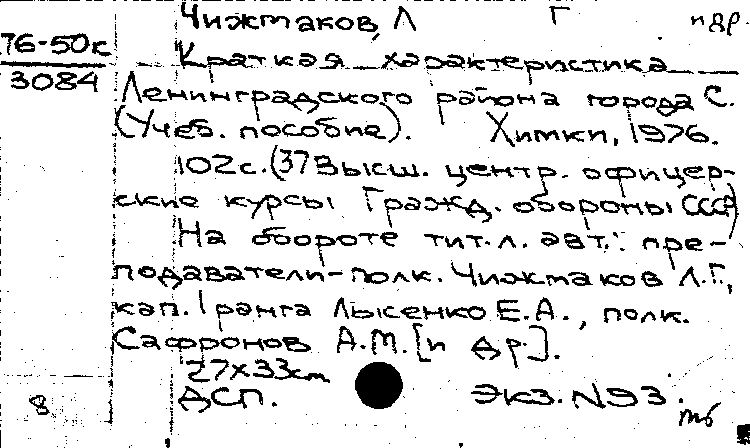 Чижмаков, Л Г и др.
76-50к
3084
Краткая характеристика
Ленинградского района города С.
(Учеб. пособие). Химки, 1976.
102с. (37 Высш. центр. офицер-
ские курсы Гражд. обороны СССР)
На обороте тит.л. авт.: пре-
подаватели-полк. Чижмаков Л.Г.,
кап. 1 ранга Лысенко Е.А., полк.
Сафронов А.М. [и др.].
27х33см
8 ДСП. Экз. N93.
мб